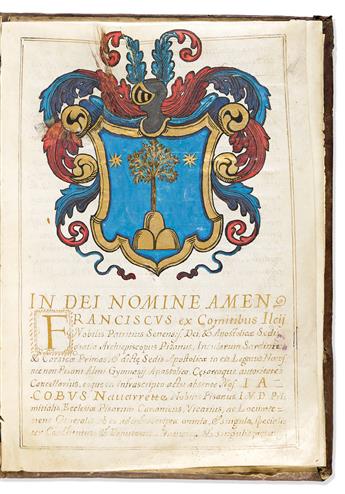 IN DEI NOMINE AMEN
FRANCISCVS ex Comitibus Ilcij
Nobilis Patritius Senensis, Dei, & Apostolicæ Sedis
gratia Archiepiscopus Pisanus, Insularum Sardiniæ
& Corsicæ Primas, & dictæ Sedis Apostolicæ in eis Legatus
non Pisani Almi Gymnasij Apostolica, Cesareaque autoritate
Cancellarius, eoque in infrascripto actu absente Nos IA
COBVS Navarretta Nobilis Pisanus I.V.D. Pri
mitialis Ecclesiæ Pisarum Canonicus, Vicarius, ac Locumte
nens Generalis omnia, & singula,
singulis